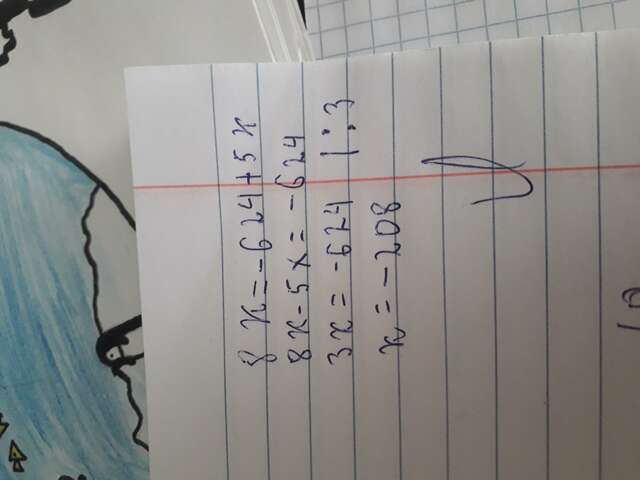 8x=-624+5x
8x-5x=-624
3x=-624 |:3
x=-208